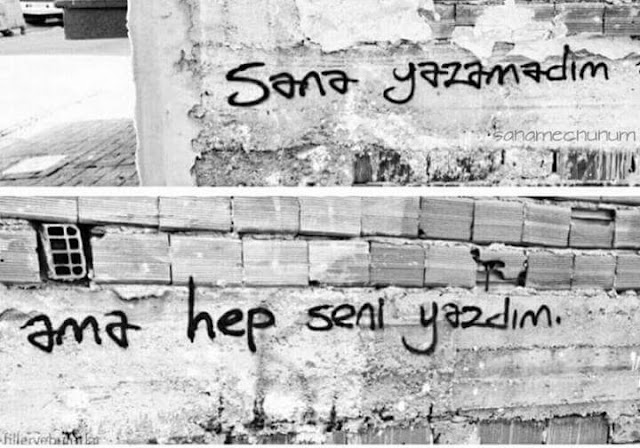 Sana yazamadım
sanamechunum
ama hep seni yazdım.